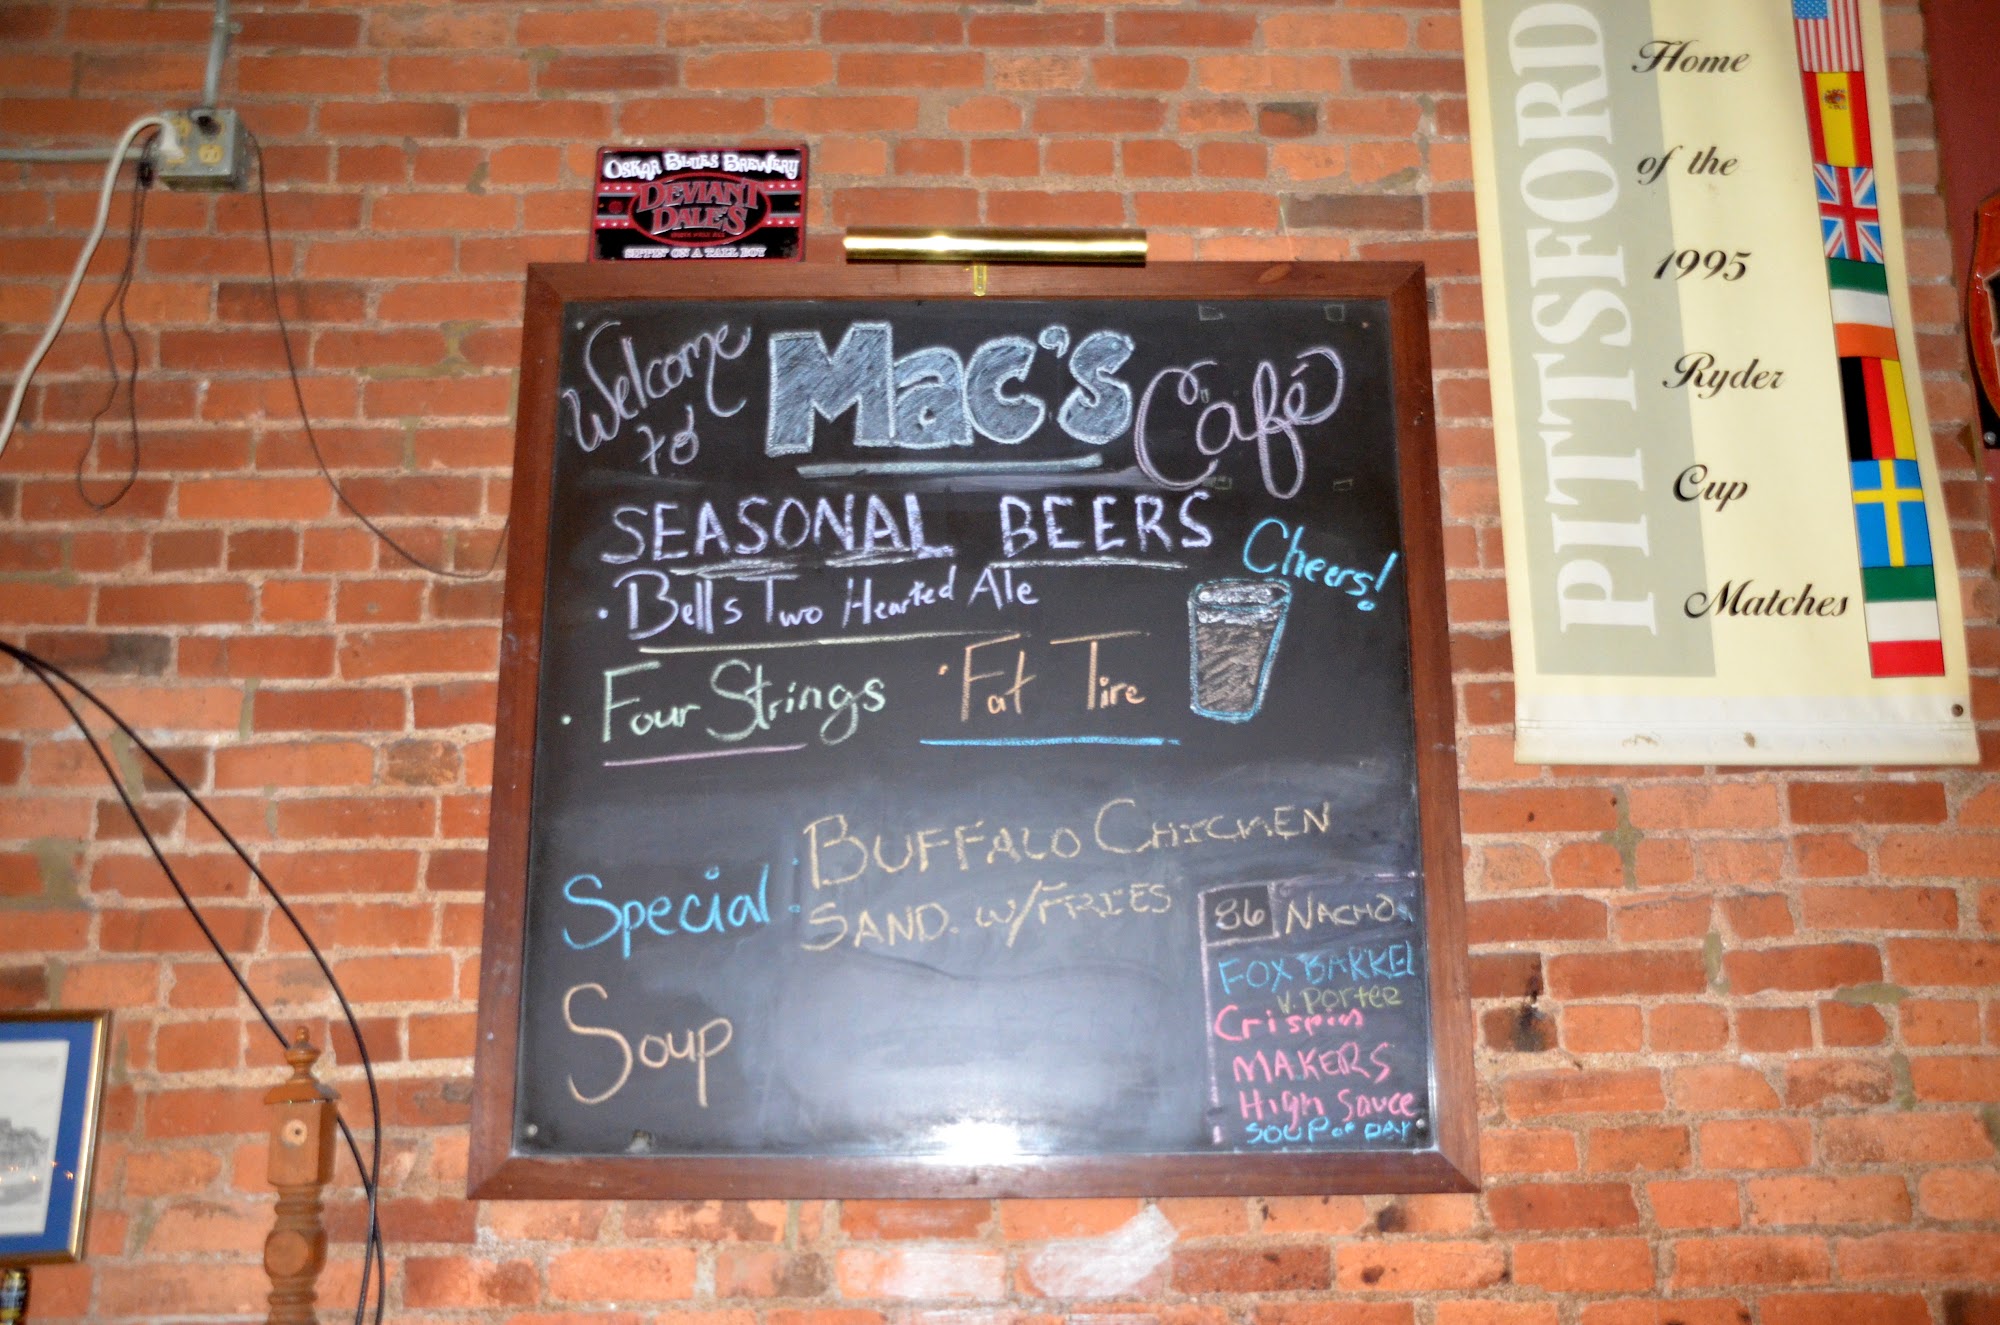 OSKAR BLUES BREWERY
DEVIANT
DALE'S
SIPPIN' ON A TALL BOY
Welcome
to
Mac's
Café
SEASONAL BEERS
• Bells Two Hearted Ale
Cheers!
• Four Strings
• Fat Tire
Special: BUFFALO CHICKEN
SAND. w/FRIES
Soup
86 NACHO
FOX BARREL
V. Porter
Crispin
MAKERS
High Sauce
SOUP OF DAY
PITTSFORD
Home
of the
1995
Ryder
Cup
Matches